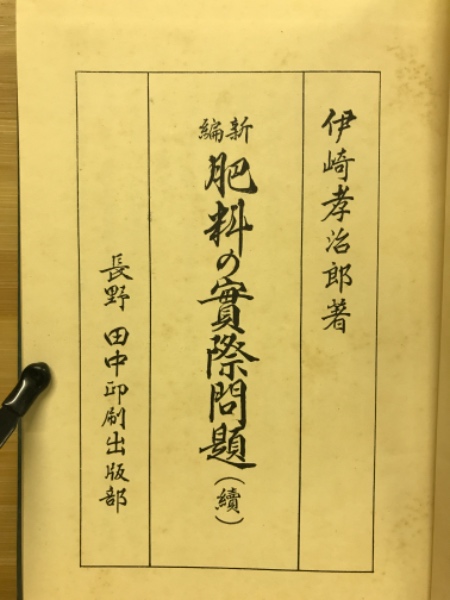 伊崎孝治郎著
新編
肥料の實際問題(續)
長野 田中印刷出版部